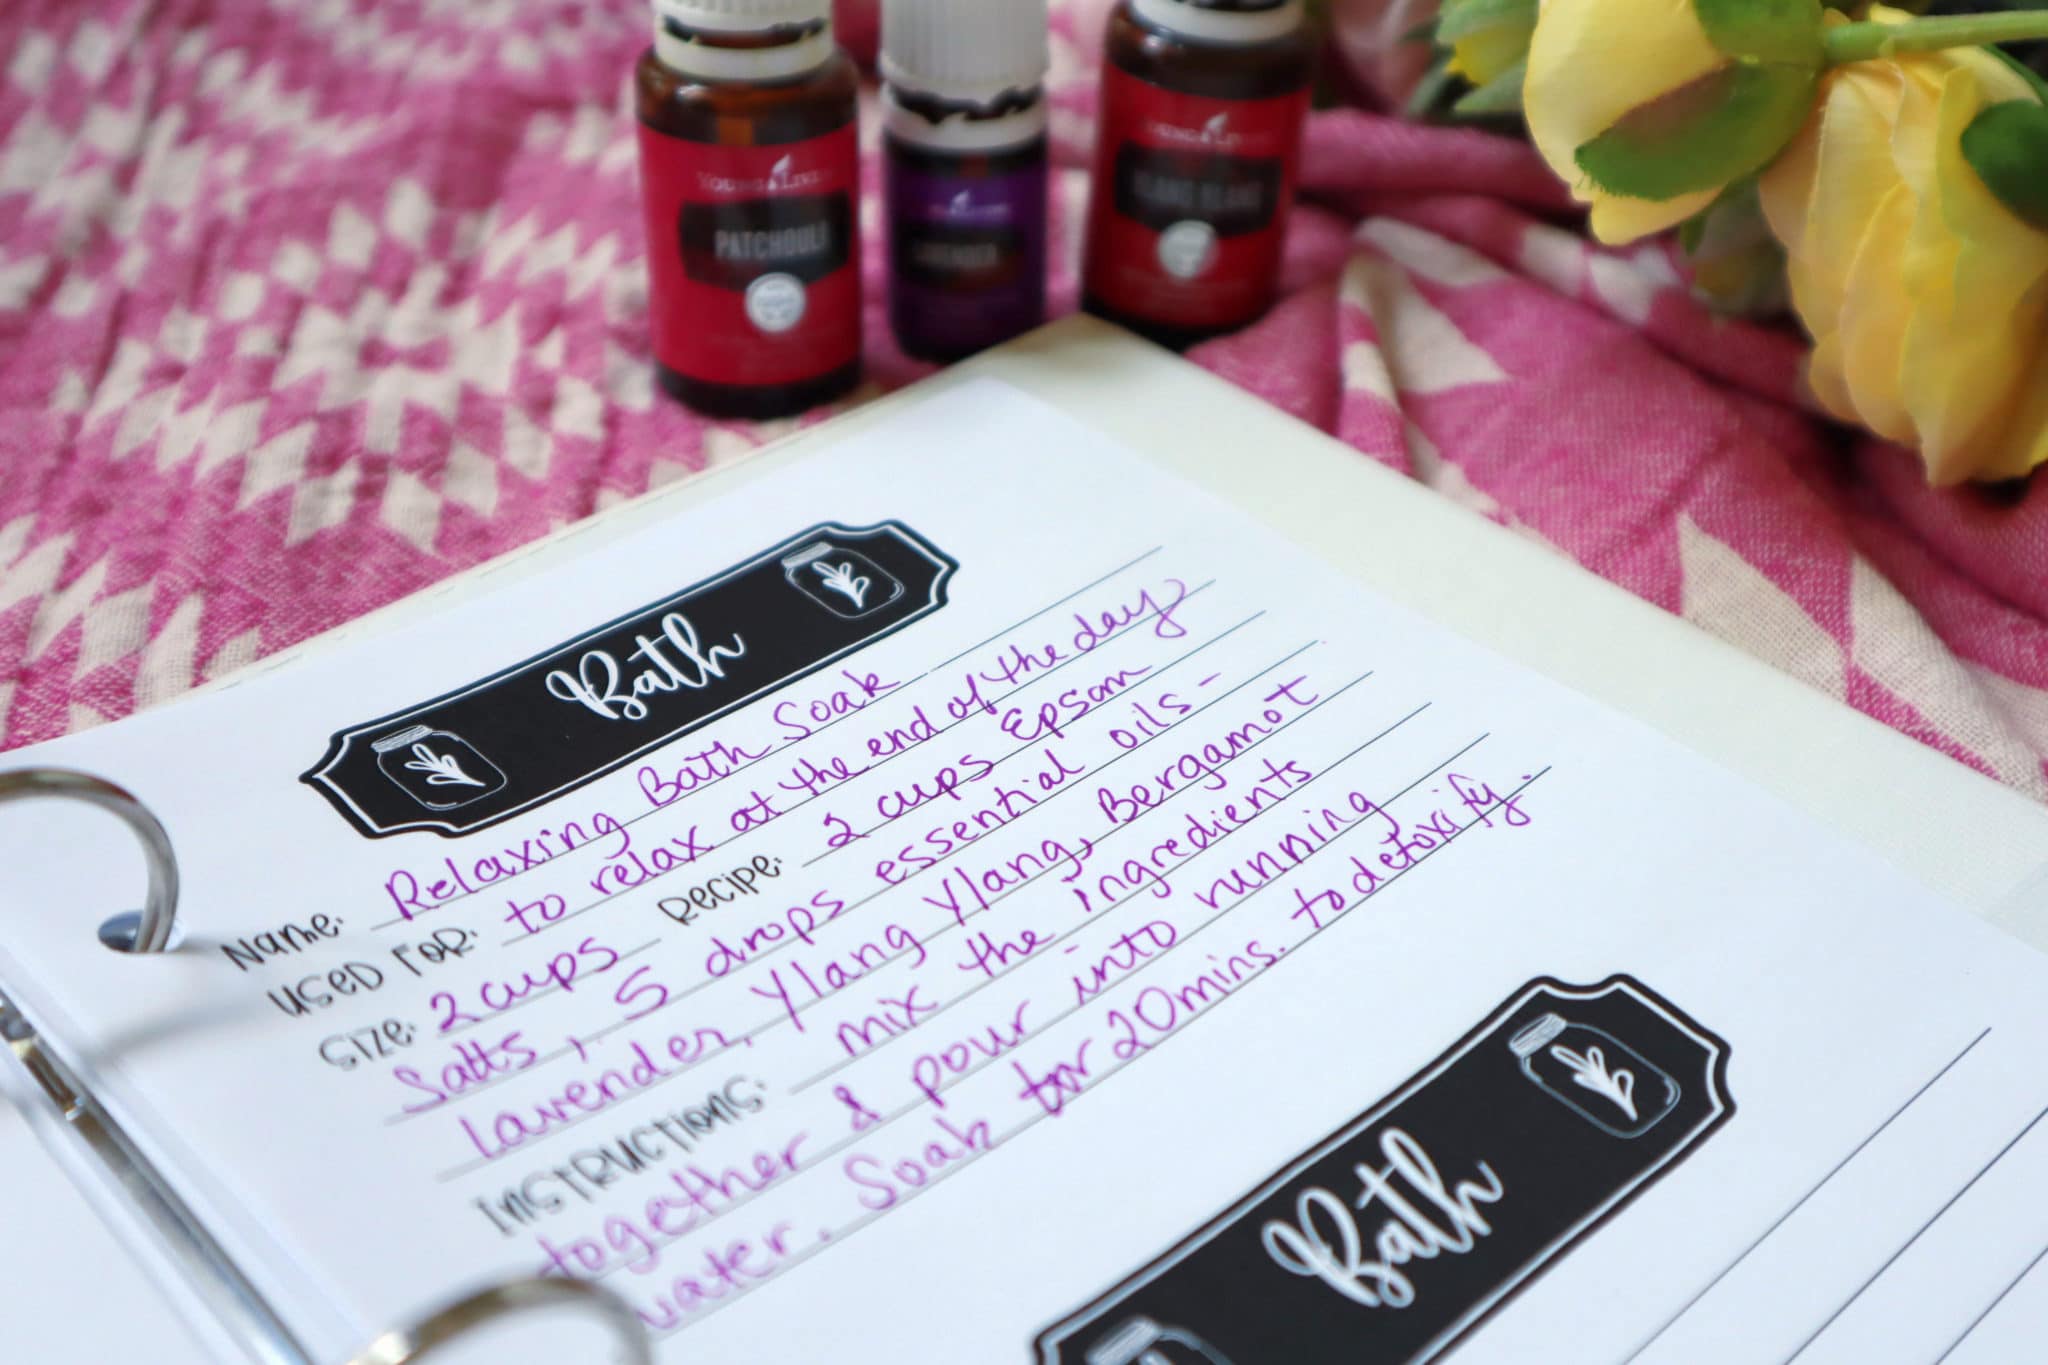 YOUNG LIVING
PATCHOULI
LAVENDER
YOUNG LIVING
YLANG YLANG
Bath
Name: Relaxing Bath Soak
Used For: to relax at the end of the day
Size: 2 cups Recipe: 2 cups Epsom
Salts, 5 drops essential oils -
lavender, Ylang Ylang, Bergamot
Instructions: mix the ingredients
together & pour into running
water. Soak for 20 mins. to detoxify.
Bath